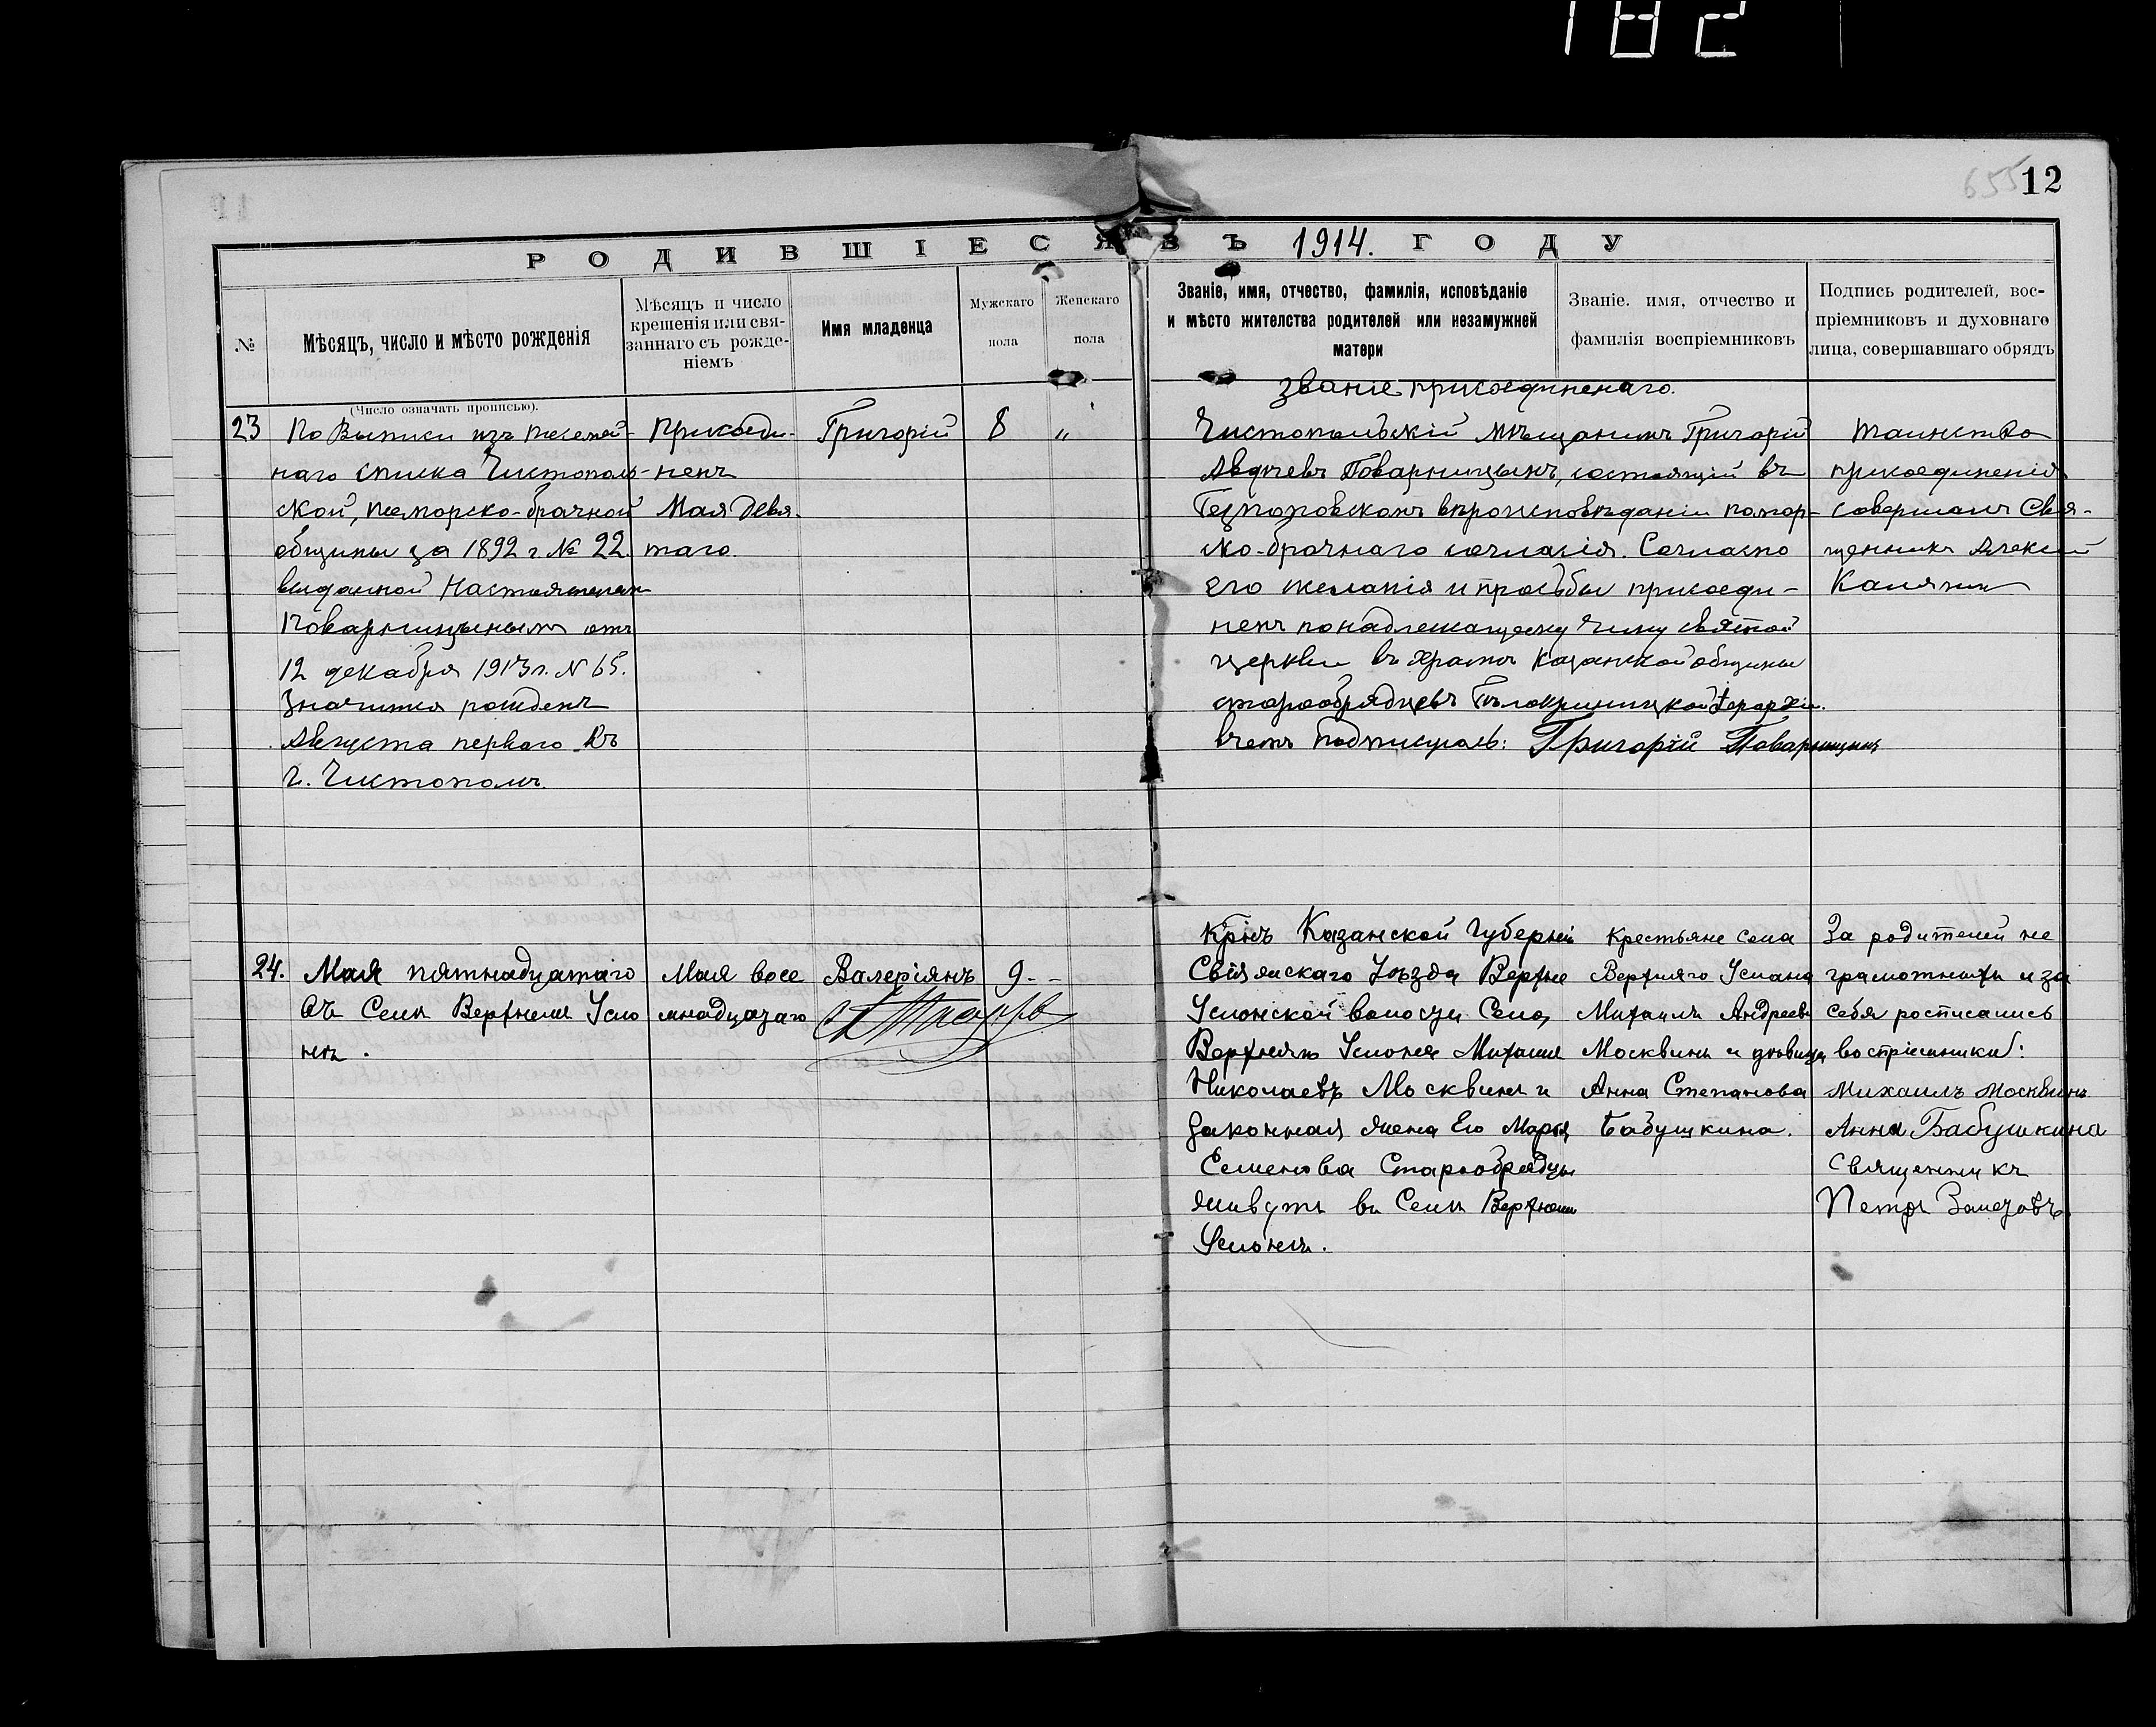 182
655 12
РОДИВШІЕСЯ ВЪ 1914. ГОДУ
№
Мѣсяцъ, число и мѣсто рожденія
(Число означать прописью).
Мѣсяцъ и число
крешенія или свя-
заннаго съ рожде-
ніемъ
Имя младенца
Мужскаго
пола
Женскаго
пола
Званіе, имя, отчество, фамилія, исповѣданіе
и мѣсто жителства родителей или незамужней
матери
Званіе. имя, отчество и
фамилія воспріемниковъ
Подпись родителей, вос-
пріемниковъ и духовнаго
лица, совершавшаго обрядъ
23
По Выписи изъ посемей-
наго списка Чистополь-
ской, поморско-брачной
общины за 1892 г № 22.
выданной Настоятелем
Поварницынымъ отъ
12 декабря 1913 г. N 65.
Значится рожденъ
Августа перваго въ
г. Чистополѣ.
Присоеди-
ненъ
Мая девя-
таго.
Григорій
8
"
Званіе присоединенаго.
Чистопольскій мѣщанинъ Григорій
Авдѣевъ Поварницынъ, состоящій въ
вѣроисповѣданіи помор-
ско-брачнаго согласія. Согласно
его желанія и просьбы присоеди-
ненъ по надлежащему чину святой
церкви въ храмѣ Казанской общины
старообрядцевъ Бѣлокриницкой Іерархіи.
в чемъ подписуюсь: Григорій Поварницынъ
таинство
присоединенія
совершалъ Свя-
щенникъ Алексій
Калягин
24.
Мая пятнадцатаго
въ Селѣ Верхнемъ Усло
нѣ.
Мая восе
мнадцатаго
Валеріянъ
9 - -
Крнъ Казанской Губерніи
Свіяжскаго Уѣзда Верхне
Услонской волости Села
Верхняго Услона Михаил
Николаевъ Москвинъ и
Законная жена Его Марья
Семенова Старообрядцы
живутъ въ Селѣ Верхнем
Услонѣ.
Крестьяне села
Верхняго Услона
Михаилъ Андреевъ
Москвинъ и
Анна Степанова
Бабушкина.
За родителей не
грамотныхъ и за
себя росписались
воспріемники:
Михаилъ Москвинъ
Анна Бабушкина
Священникъ
Петръ Залетовъ